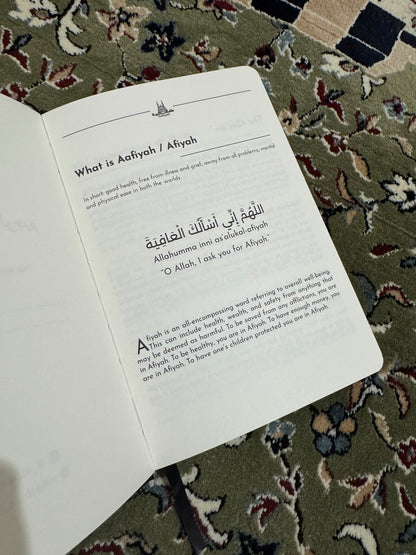 What is Aafiyah / Afiyah
In short: good health, free from illness and grief, away from all problems, mental
and physical ease in both the worlds.
اللَّهُمَّ إِنِّي أَسْأَلُكَ الْعَافِيَةَ
Allahumma inni as'alukal-afiyah
'O Allah, I ask you for Afiyah'
Afiyah is an all-encompassing word referring to overall well-being.
This can include health, wealth, and safety from anything that
may be deemed as harmful. To be saved from any afflictions, you are
in Afiyah. To be healthy, you are in Afiyah. To have enough money, you
are in Afiyah. To have one's children protected you are in Afiyah.